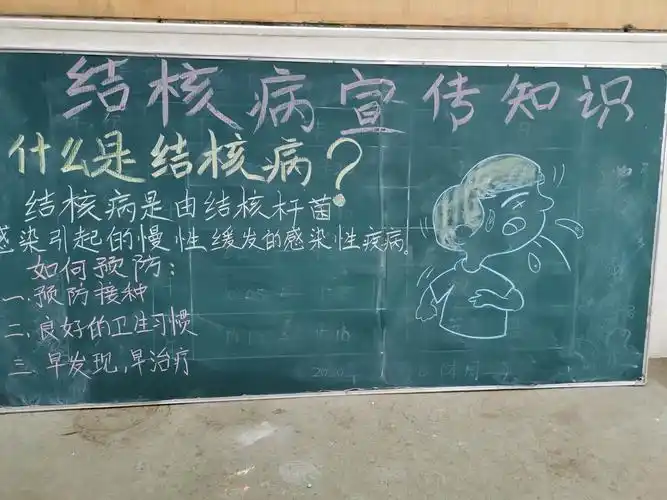 结核病宣传知识
什么是结核病?
结核病是由结核杆菌
感染引起的慢性缓发的感染性疾病。
如何预防:
一.预防接种
二.良好的卫生习惯
三.早发现,早治疗